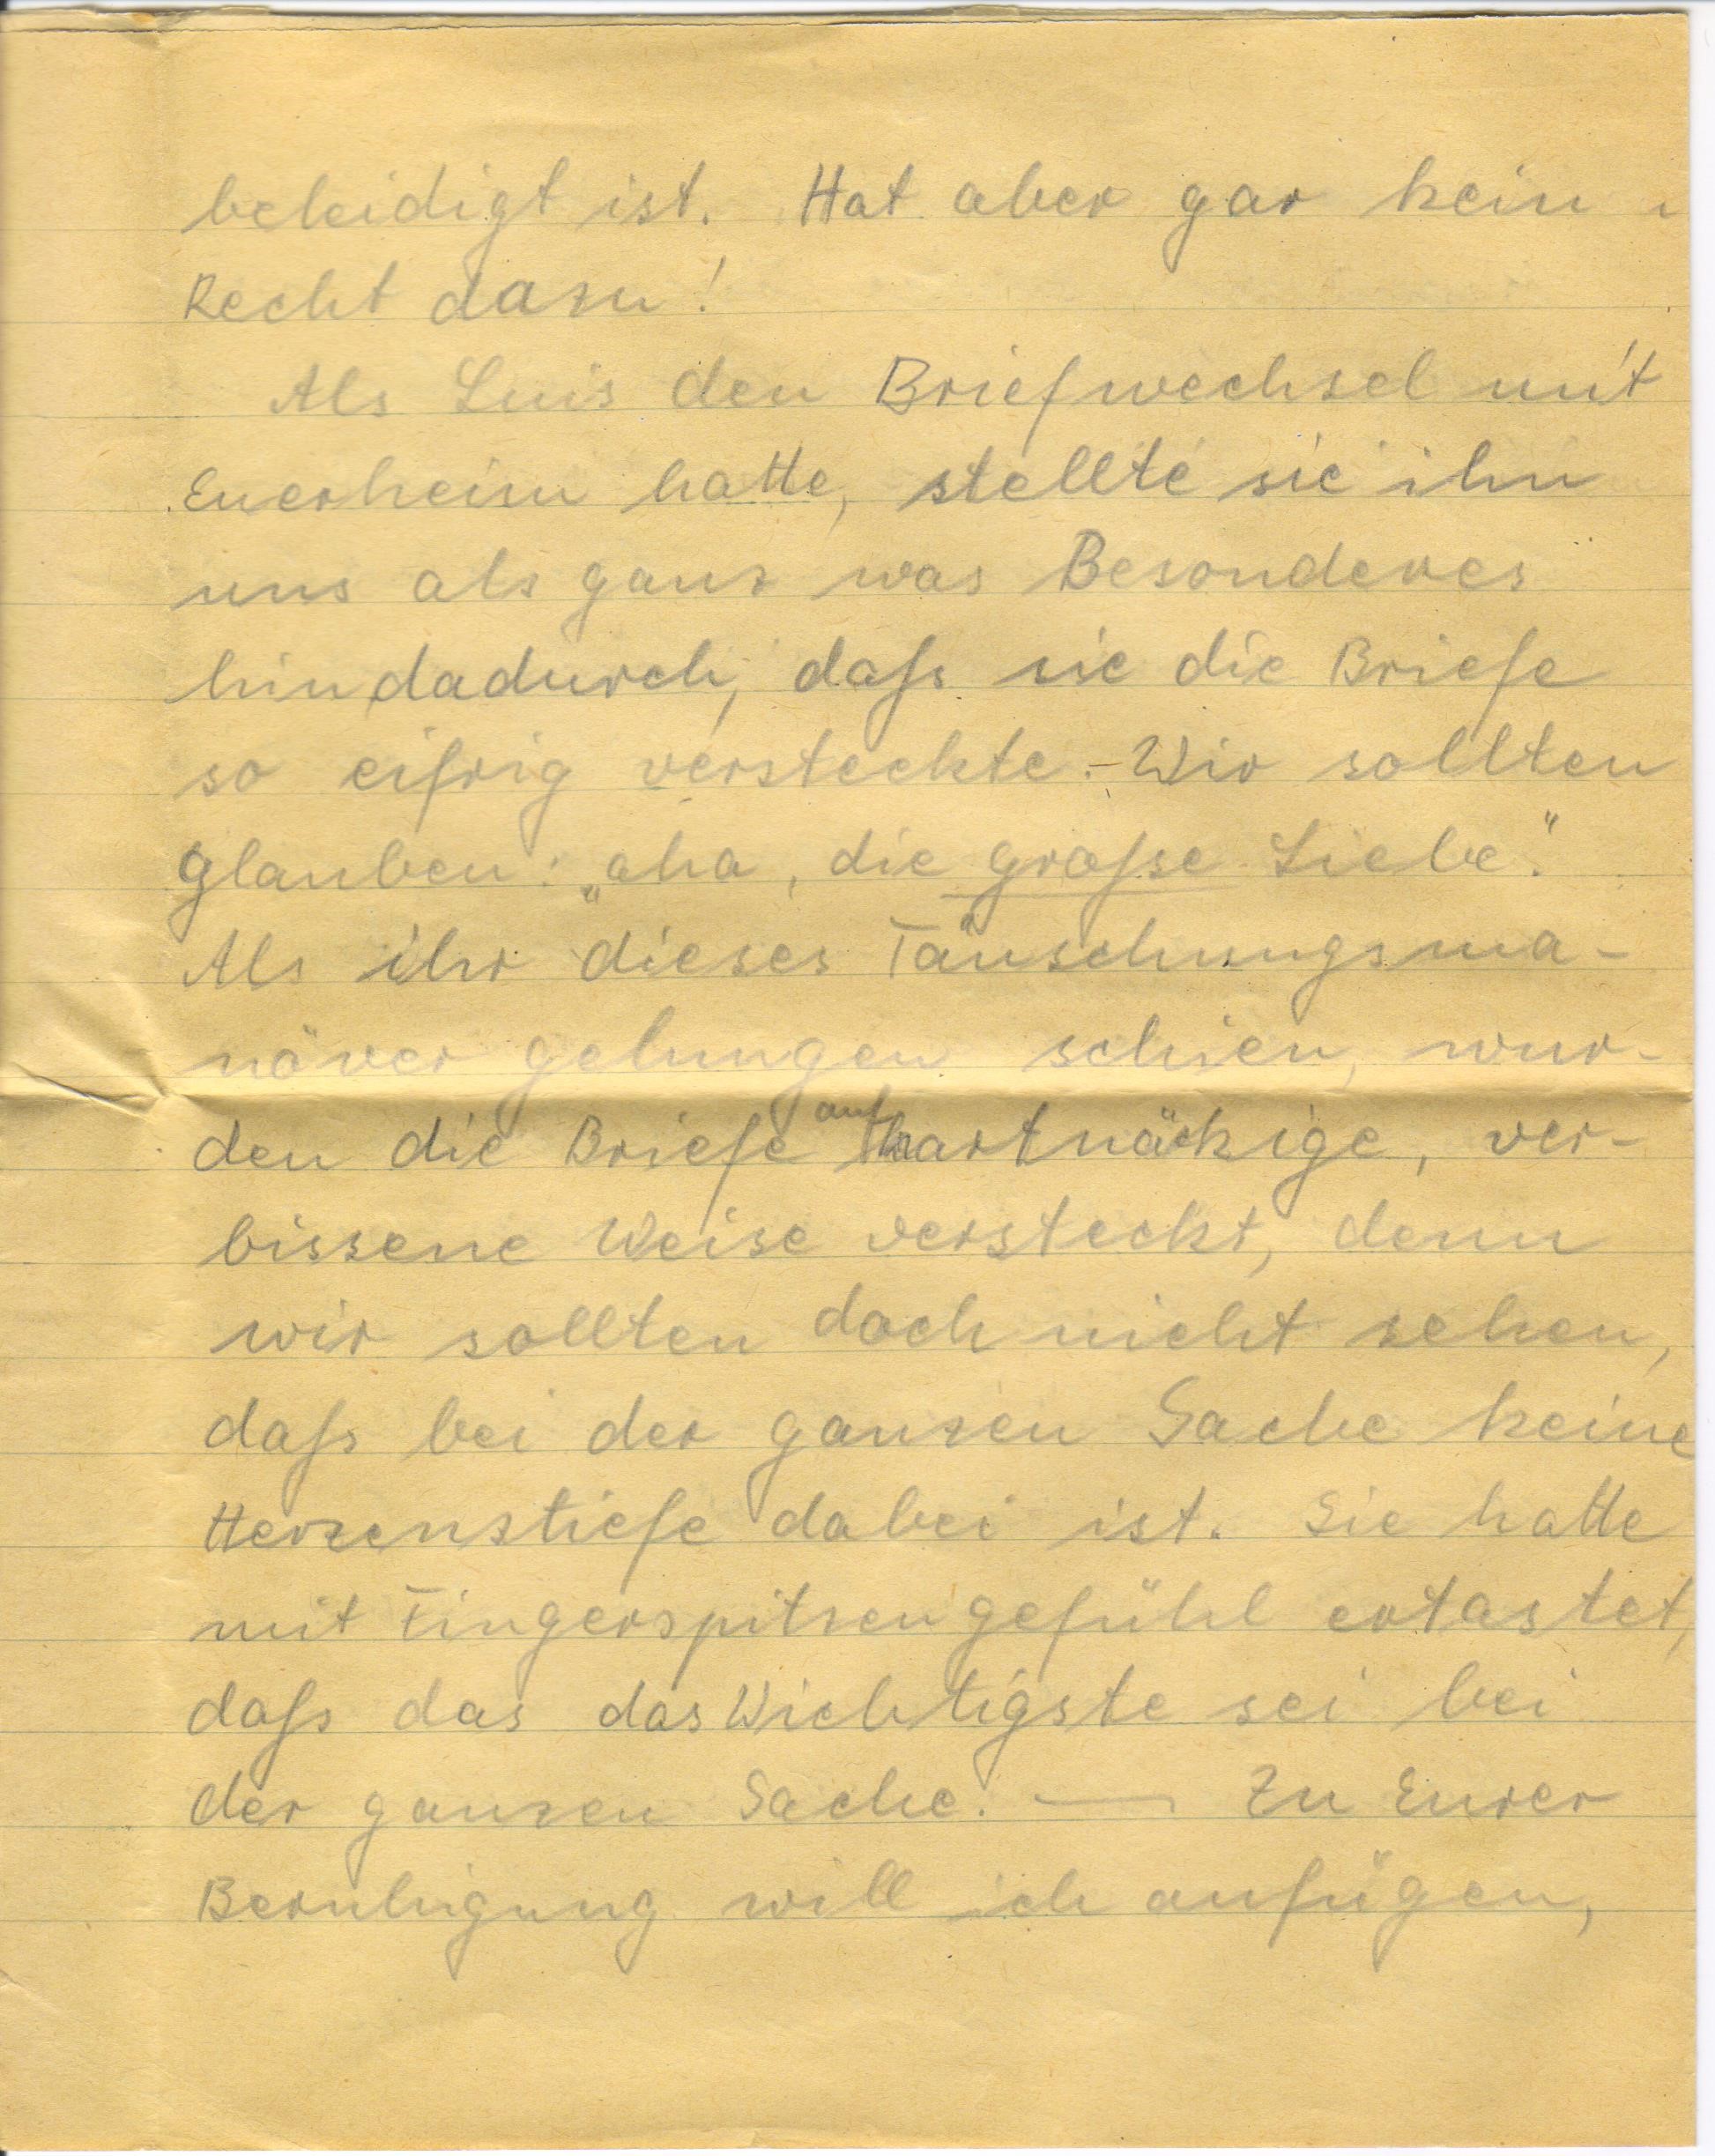 beleidigt ist. Hat aber gar kein
Recht dazu!
Als Luis den Briefwechsel mit
Euerheim hatte, stellte sie ihn
uns als ganz was Besonderes
hin dadurch, daß sie die Briefe
so eifrig versteckte. – Wir sollten
glauben: „aha, die große Liebe."
Als ihr dieses Täuschungsma-
növer gelungen schien, wur-
den die Briefe auf hartnäckige, ver-
bissene Weise versteckt, denn
wir sollten doch nicht sehen,
daß bei der ganzen Sache keine
Herzenstiefe dabei ist. Sie hatte
mit Fingerspitzengefühl ertastet,
daß das das Wichtigste sei bei
der ganzen Sache. — Zu Eurer
Beruhigung will ich anfügen,